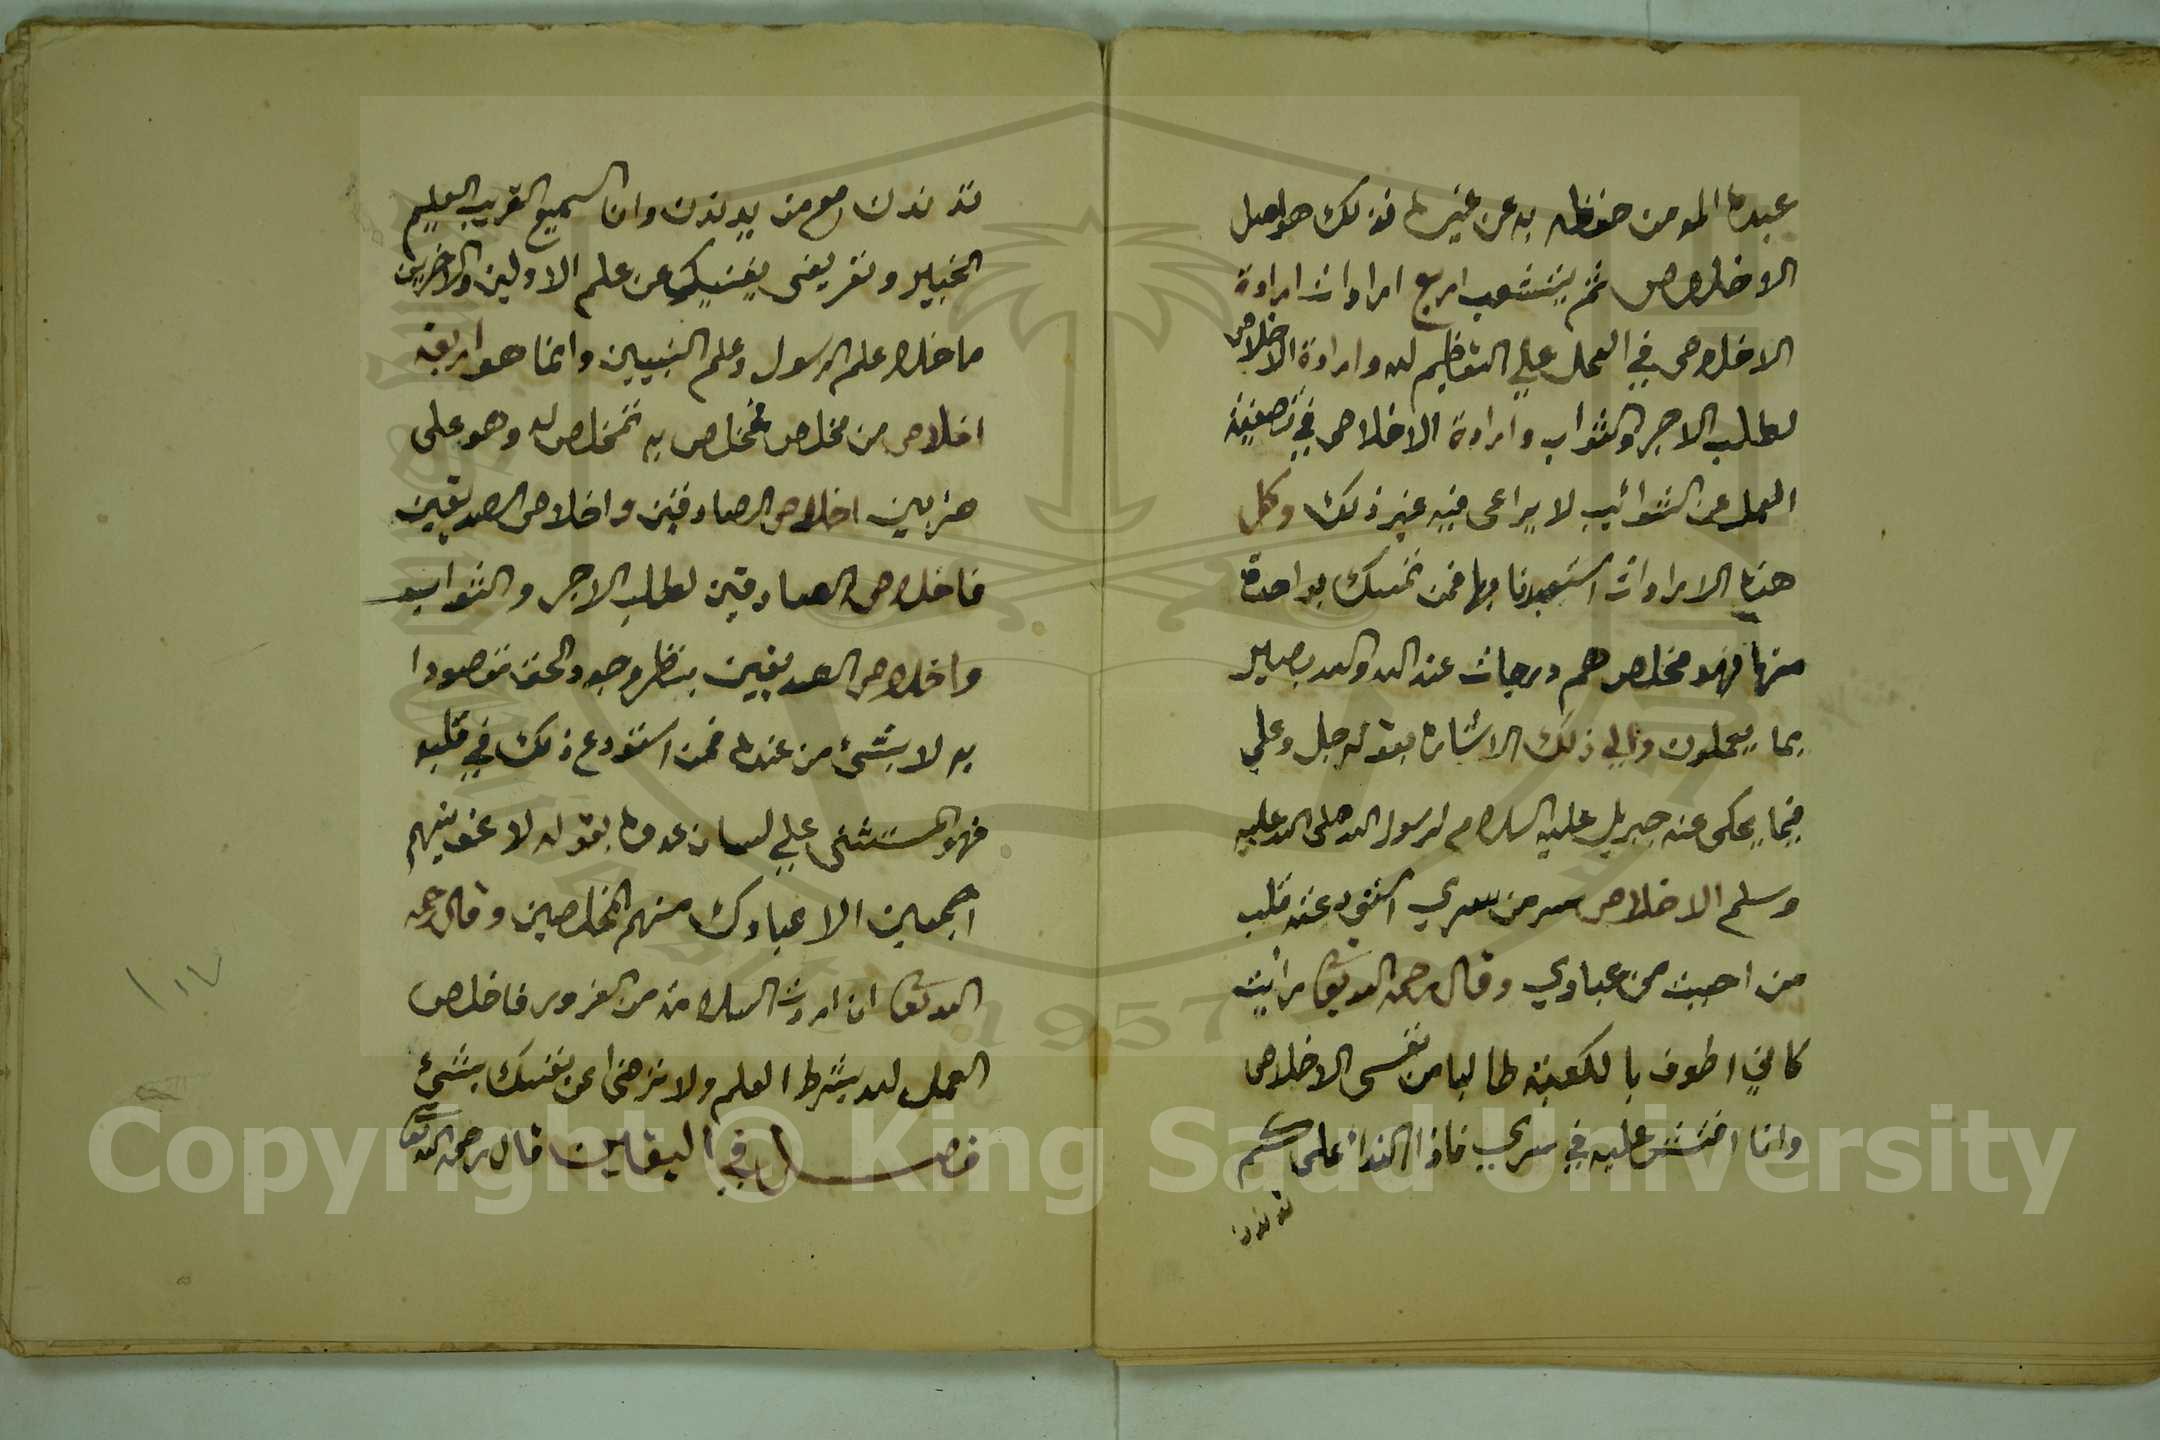 عبده المومن حفظه به عن غيره فذلك هو اصل
الاخلاص ثم يتشعب اربع ارادات ارادة
الاخلاص في العمل علي التعظيم لله وارادة الاخلاص
لطلب الاجر والثواب وارادة الاخلاص في تصفية
العمل عن الشوائب لا يراعي فيه غير ذلك وكل
هذه الارادات استعبدنا بها فمن تمسك بواحدة
منها فهو مخلص هم درجات عند الله والله بصير
بما يعملون والي ذلك الاشارة بقوله جل وعلي
فيما يحكى عنه جبريل عليه السلام لرسول الله صلى الله عليه
وسلم الاخلاص سر من سري استودعته قلب
من احببت من عبادي وقال رحمه الله تعالى رايت
كاني اطوف بالكعبة طالبا من نفسي الاخلاص
وانا افتش عليه في سري فاذا النداء على كم
تدندن
تدندن مع من يدندن وانا السميع القريب العليم
الخبير وتعريفي يغنيك عن علم الاولين والاخرين
ما خلا علم الرسول وعلم النبيين وانما هو اربعة
اخلاص من مخلص مخلص به تخلص له وهو على
ضربين اخلاص الصادقين واخلاص الصديقين
فاخلاص الصادقين لطلب الاجر والثواب
واخلاص الصديقين بنظر وجود الحق مقصودا
به لا بشئ من عنده فمن استودع ذلك في قلبه
فهو المستثنى علي لسان عدوه بقوله لاغوينهم
اجمعين الا عبادك منهم المخلصين وقال رحمه
الله تعالى ان اردت السلامة من الغرور فاخلص
العمل لله بشرط العلم ولا ترضى عن نفسك بشئ
فصل في اليقين قال رحمه الله تعالى
Copyright © King Saud University
1957